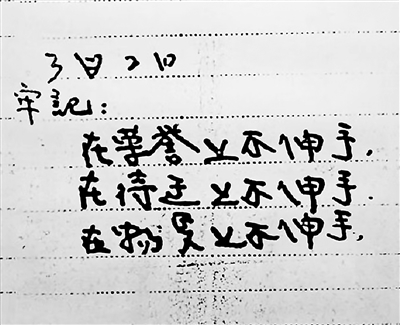 3月2日
牢記:
在荣誉上不伸手,
在待迂上不伸手.
在物质上不伸手,